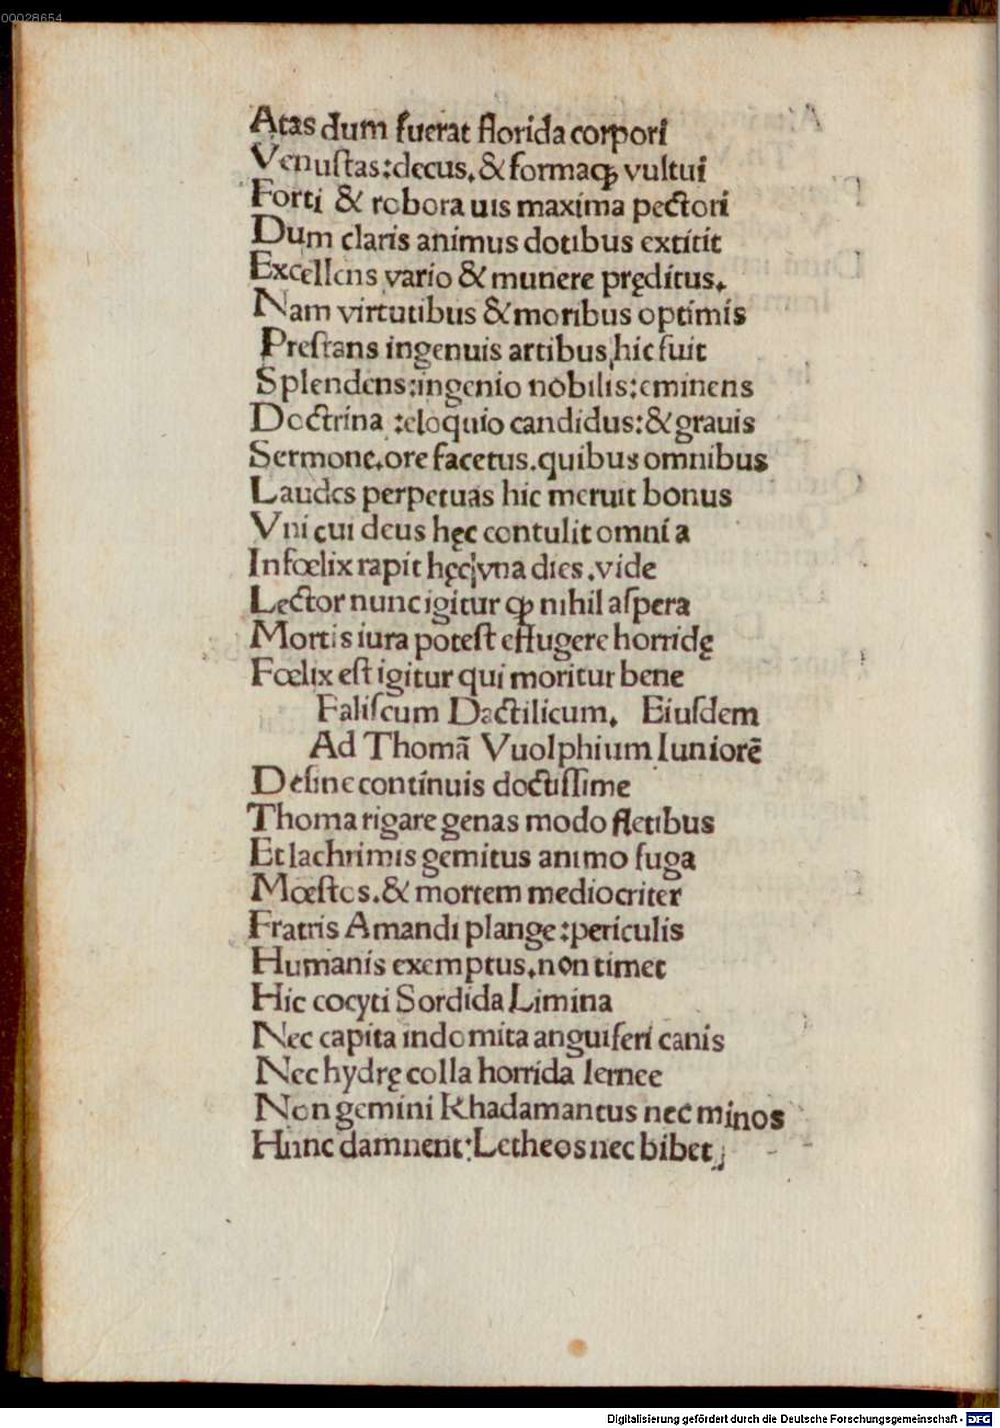 00028654
Atas dum fuerat florida corpori
Venuſtas:decus.&formaqꝫ vultui
Forti & robora uis maxima pectori
Dum claris animus dotibus extitit
Excellens vario & munere pręditus.
Nam virtutibus &moribus optimis
Preſtans ingenuis artibus hic fuit
Splendens:ingenio nobilis:eminens
Doctrina :eloquio candidus:&grauis
Sermone.ore facetus.quibus omnibus
Laudes perpetuas hic meruit bonus
Vni cui deus hęc contulit omnia
Infœlix rapit hęc vna dies.vide
Lector nunc igitur qꝫ nihil aſpera
Mortis iura poteſt effugere horridę
Fœlix eſt igitur qui moritur bene
Faliſcum Dactilicum. Eiuſdem
Ad Thomā Vuolphium Iuniorē
Deſine continuis doctiſſime
Thoma rigare genas modo fletibus
Et lachrimis gemitus animo fuga
Mœſtos.& mortem mediocriter
Fratris Amandi plange:periculis
Humanis exemptus.non timet
Hic cocyti Sordida Limina
Nec capita indomita anguiferi canis
Nec hydrę colla horrida lernee
Non gemini Rhadamantus nec minos
Hunc damnent:Letheos nec bibet
Digitalisierung gefördert durch die Deutsche Forschungsgemeinschaft - DFG